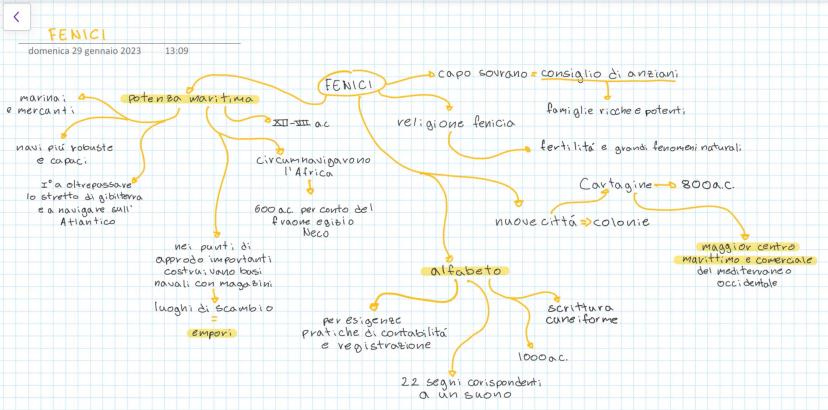 FENICI
domenica 29 gennaio 2023 13:09
FENICI
capo sovrano = consiglio di anziani
famiglie ricche e potenti
religione fenicia
fertilitá e grandi fenomeni naturali
potenza marittima
marinai
e mercanti
navi piú robuste
e capaci
1° a oltrepassare
lo stretto di gibilterra
e a navigare sull'
Atlantico
nei punti di
approdo importanti
costruivano basi
navali con magazzini
luoghi di scambio
=
empori
XII-VII a.c
circumnavigarono
l'Africa
600 a.c. per conto del
fraone egizio
Neco
alfabeto
per esigenze
pratiche di contabilitá
e registrazione
22 segni corispondenti
a un suono
1000 a.c.
scrittura
cuneiforme
nuove cittá => colonie
Cartagine → 800 a.c.
maggior centro
marittimo e comerciale
del mediterraneo
occidentale